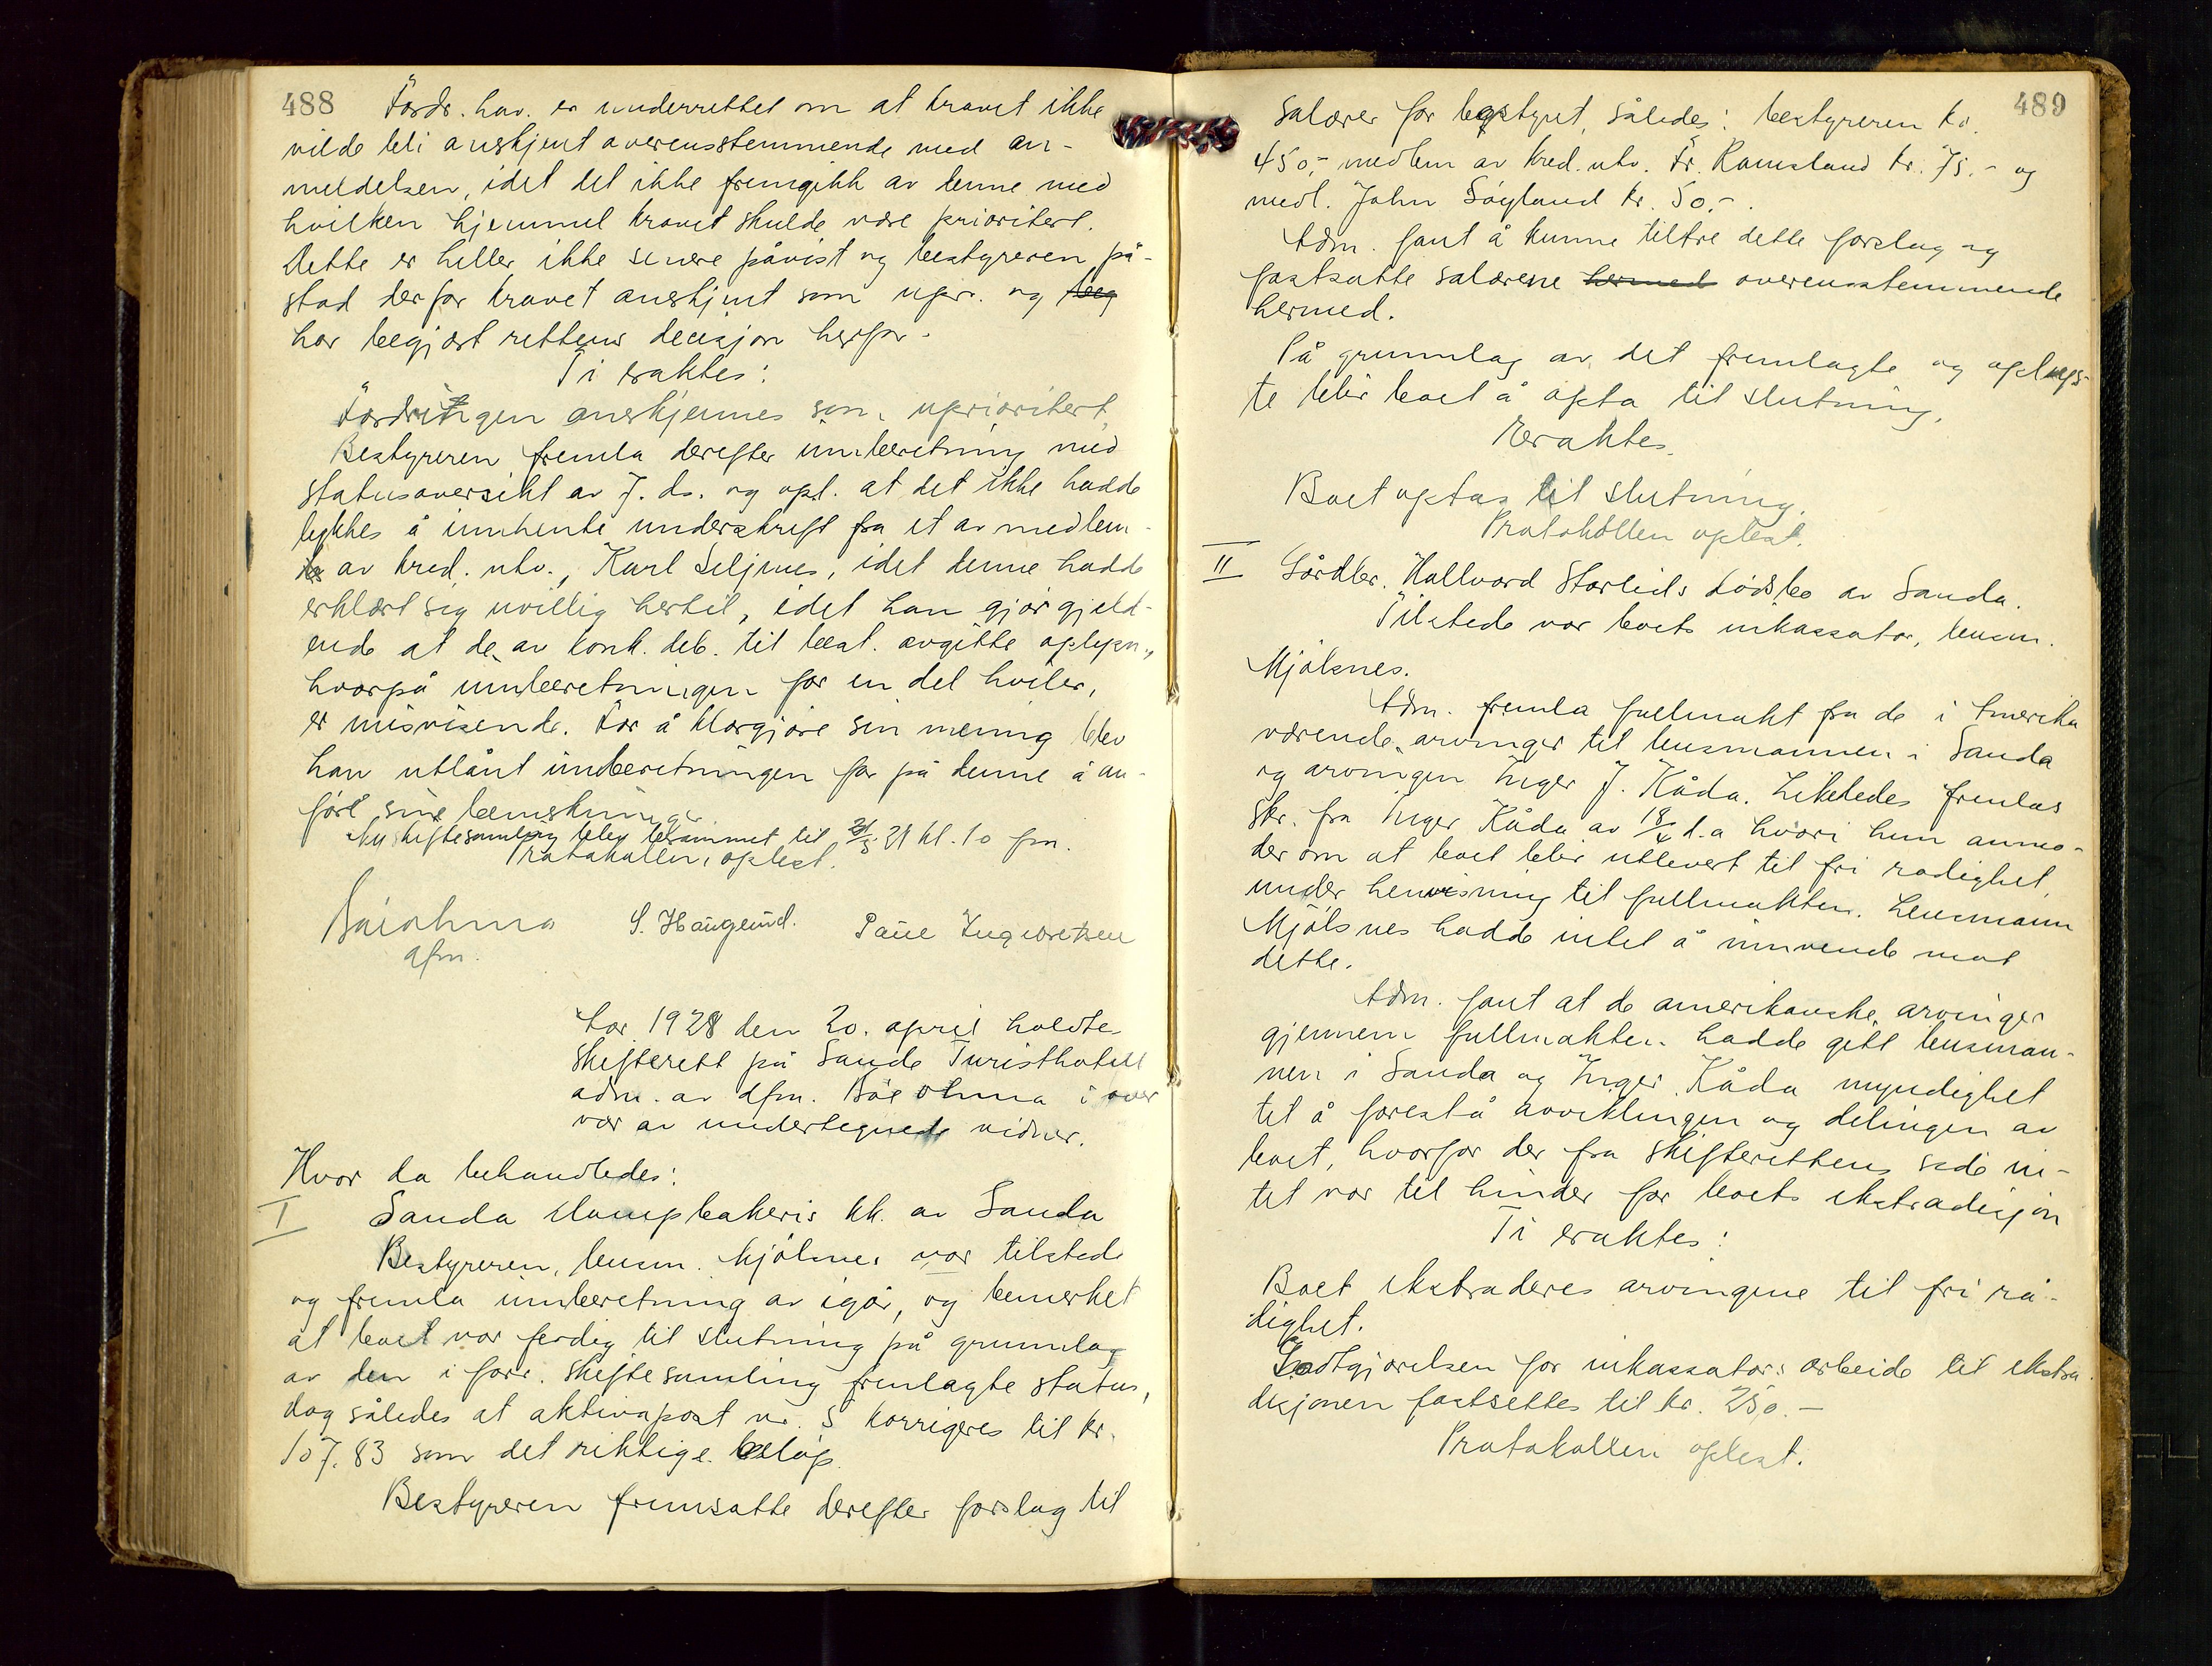 488
Fordr. hav. er underrettet om at kravet ikke
vilde bli anerkjent overensstemmende med an-
meldelsen, idet det ikke fremgikk av denne med
hvilken hjemmel kravet skulde være prioritert.
Dette er heller ikke senere påvist og bestyreren på-
stod derfor kravet anerkjent som upr. og beg
har begjært rettens decisjon herfor.
Ti eraktes:
Fordringen anerkjennes som uprioritert.
Bestyreren fremla derefter innberetning med
statusoversikt av 7. ds. og opl. at det ikke hadde
lykkes å innhente underskrift fra et av medlem-
av kred. utv., Karl Seljenes, idet denne hadde
erklært sig uvillig hertil, idet han gjör gjeld-
ende at de av konk. deb. til best. avgitte oplysn.,
hvorpå innberetningen for en del hviler,
er misvisende. For å klargjöre sin mening blev
han utlånt innberetningen for på denne å an-
före sine bemerkninger
Ny skiftesamling blev berammet til 21 kl. 10 fm.
Protokollen oplest.
S. Haugeind. Paul Ingebretsen
dfm.
År 1928 den 20. april holdtes
skifterett på Sauda Turisthotell
adm. av dfm. Böe Ohma i over
vær av undertegnede vidner.
Hvor da behandledes:
I Sauda Dampbakeris kk. av Sauda
Bestyreren, lensm. Mjölsnes var tilstede
og fremla innberetning av igår, og bemerket
at boet var ferdig til slutning på grunnlag
av den i forr. skiftesamling fremlagte status,
dog således at aktivapost nr. 5 korrigeres til kr.
107.83 som det riktige belöp.
Bestyreren fremsatte derefter forslag til
489
salærer for bostyret, således: bestyreren kr.
450,- medlem av kred. utv. Fr. Ramsland kr. 75.- og
medl. John Löyland kr. 50.-.
Adm. fant å kunne tiltre dette forslag og
fastsatte salærene hermed overensstemmende
hermed.
På grunnlag av det fremlagte og oplys-
te blir boet å opta til slutning.
Eraktes
Boet optas til slutning.
Protokollen oplest.
II Gårdbr. Hallvard Storlids dödsbo av Sauda.
Tilstede var boets inkassator, lensm.
Mjölsnes.
Adm. fremla fullmakt fra de i Amerika
værende arvinger til lensmannen i Sauda
og arvingen Inger J. Kåda. Likeledes fremlas
skr. fra Inger Kåda av 18/4 d.a hvori hun anmo-
der om at boet blir utlevert til fri rådighet,
under henvisning til fullmakten. Lensmann
Mjölsnes hadde intet å innvende mot
dette.
Adm. fant at de amerikanske arvinger
gjennem fullmakten hadde gitt lensman-
nen i Sauda og Inger Kåda myndighet
til å forestå avviklingen og delingen av
boet, hvorfor der fra skifterettens side in-
tet var til hinder for boets ekstradisjon
Ti eraktes:
Boet ekstraderes arvingene til fri rå-
dighet.
Godtgjörelsen for inkassators arbeide til ekstra
disjonen fastsettes til kr. 250.-
Protokollen oplest.